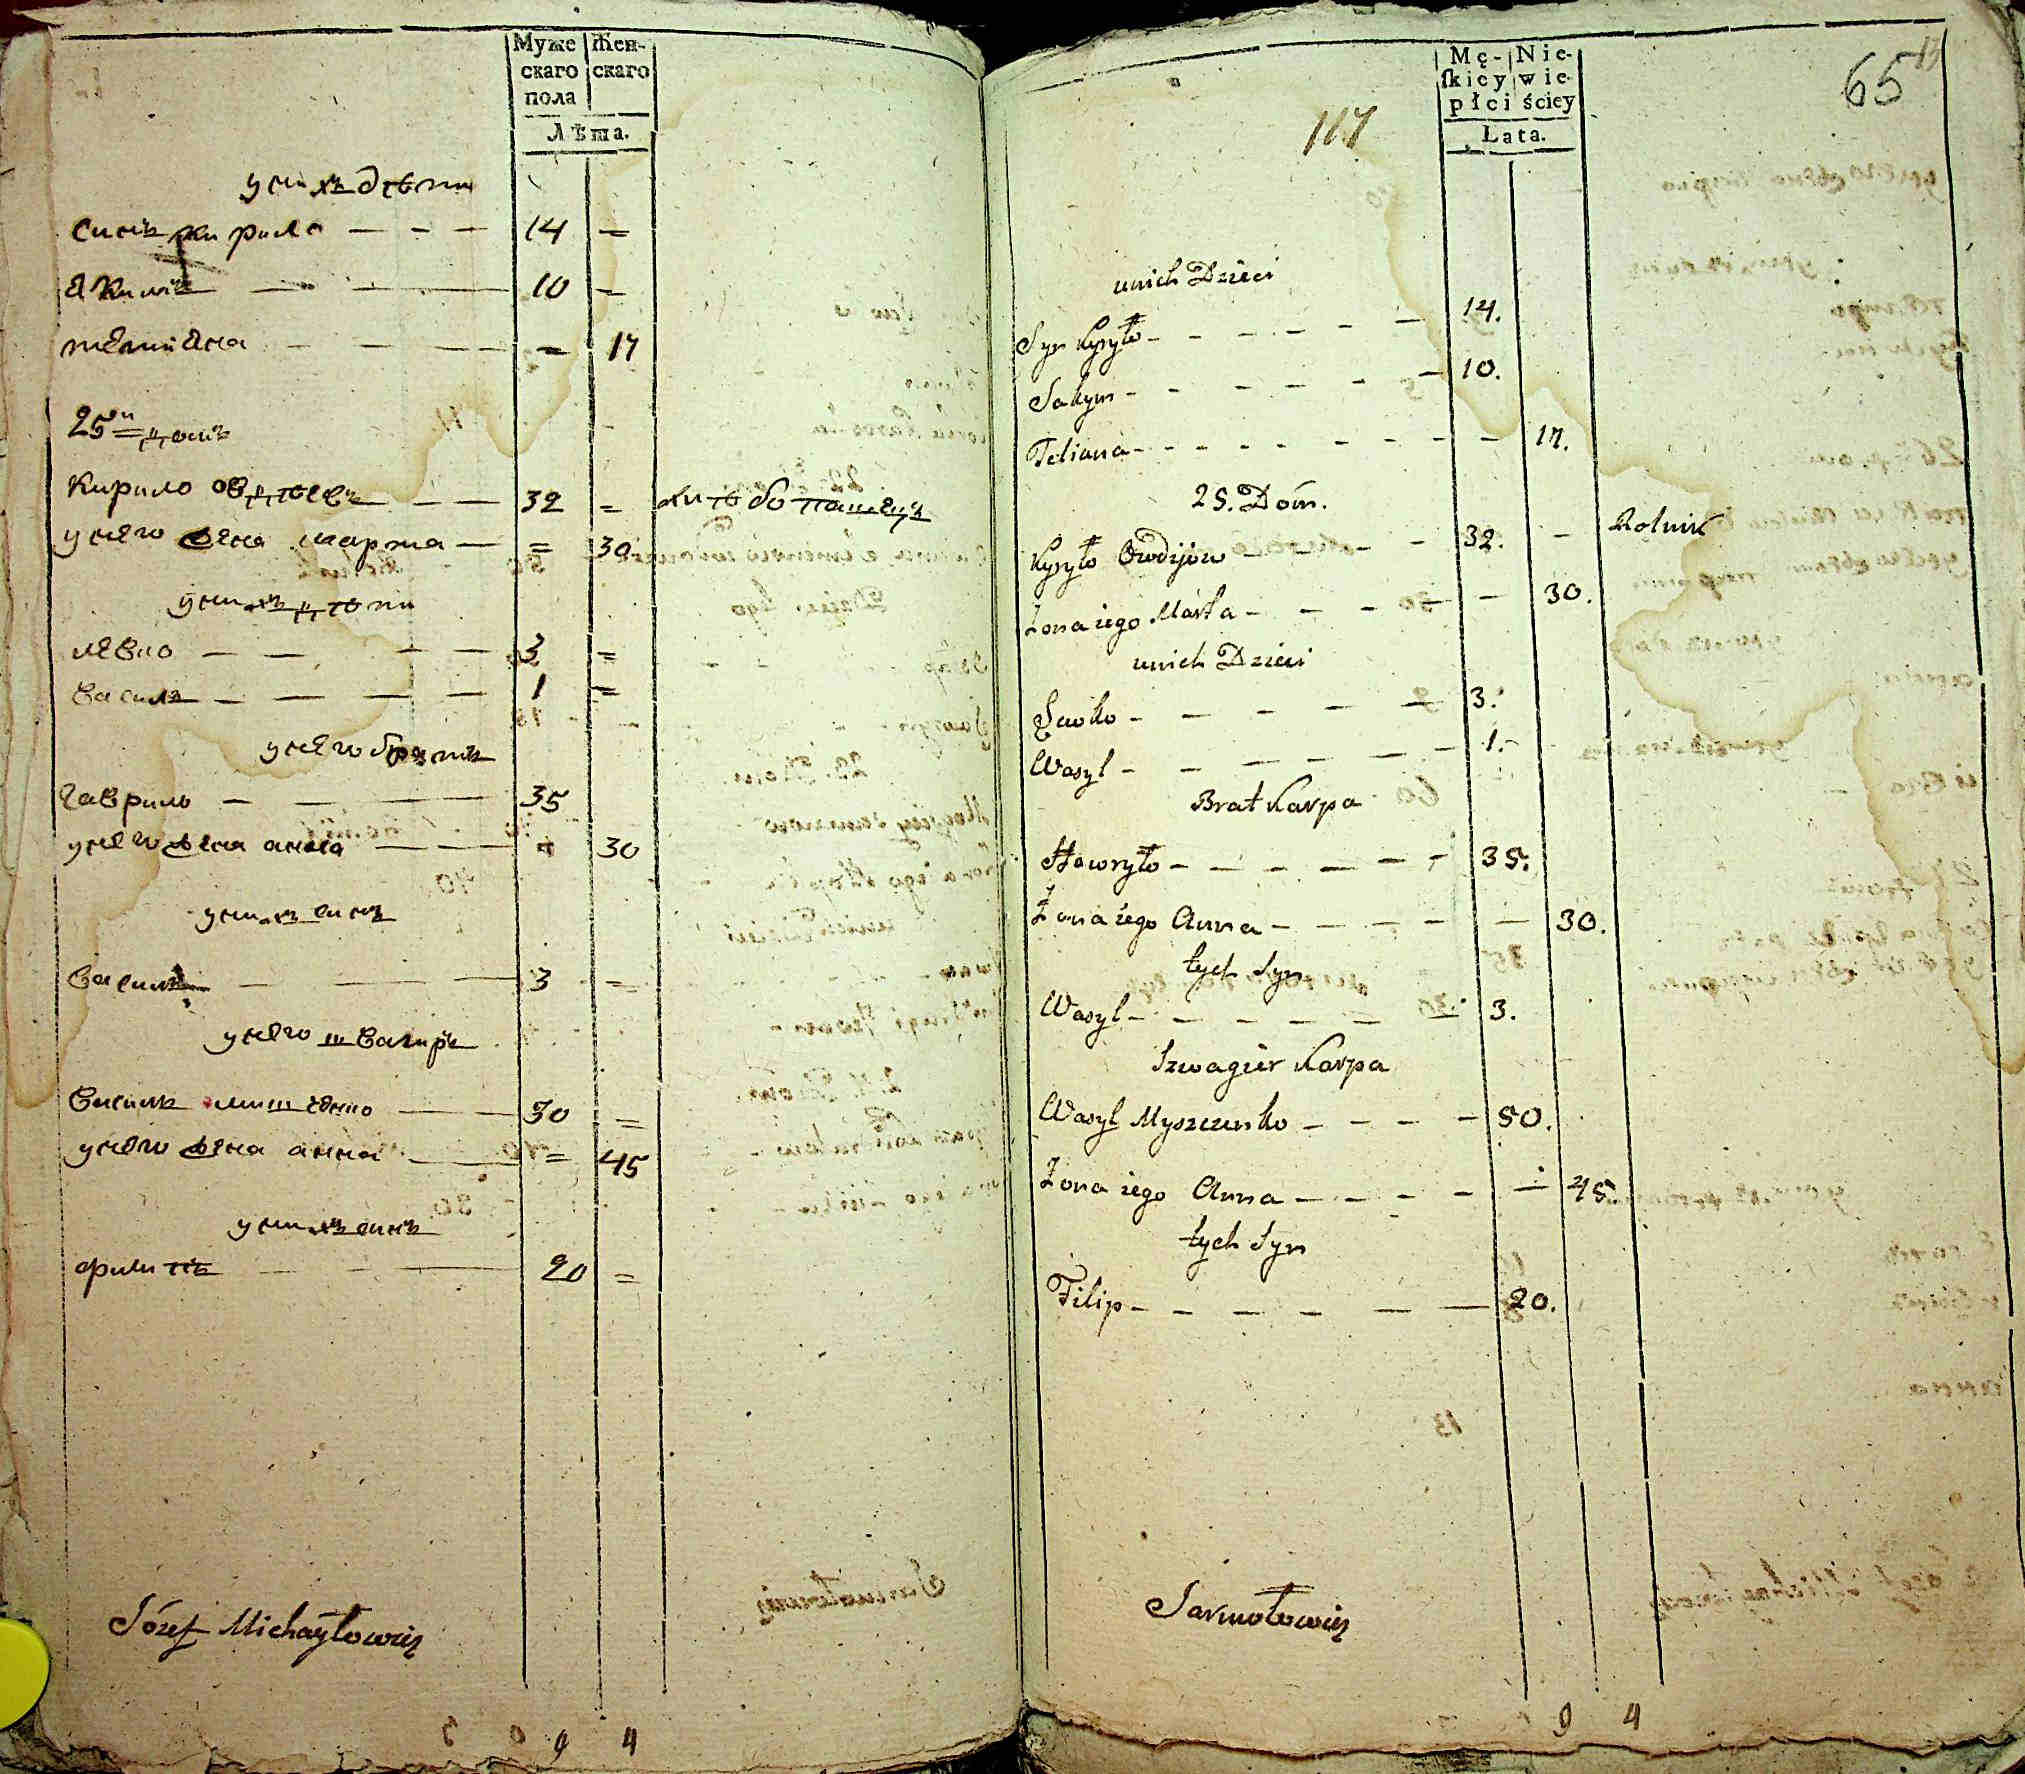 Муже Жен-
скаго скаго
пола
Лѣта.
у нихъ дѣти
синъ кирило — — — 14 =
Якимъ — — — 10 —
тетиЯна — — — = 17
25й домъ
Кирило овдѣевъ — — 32 = хлѣбопашецъ
у него жена марта — = 30
у нихъ дѣти
левко — — — — 3 =
Василь — — — — 1 =
у него братъ
гаврило — — — 35
у него жена анна — — 30
у нихъ синъ
Василь — — — 3 =
у него швагиръ
Василь мишченко — — 50 =
у него жена анна — = 45
у нихъ синъ
филипъ — — — 20 =
Józef Michayłowicz
9 4
65
117
Mę- Nie-
skiey wie-
płci ściey
Lata.
unich Dzieci
Syn Kyryło - - - - - - 14.
Jakym - - - - - - 10.
Tetiana - - - - - - - - 17.
25. Dom.
Kyryło Owdijow - - - - - 32. - Rolnik
Zona iego Marta - - - - - 30.
unich Dzieci
Lewko - - - - - - 3.
Wasyl - - - - - - 1.
Brat Karpa
Hawryło - - - - - - 35.
Żona iego Anna - - - - - - 30.
tych Syn
Wasyl - - - - - - 3.
Szwagier Karpa
Wasyl Myszczenko - - - - 50.
Żona iego Anna - - - - - 45.
tych Syn
Filip - - - - - - 20.
Jarmołowicz
9 4